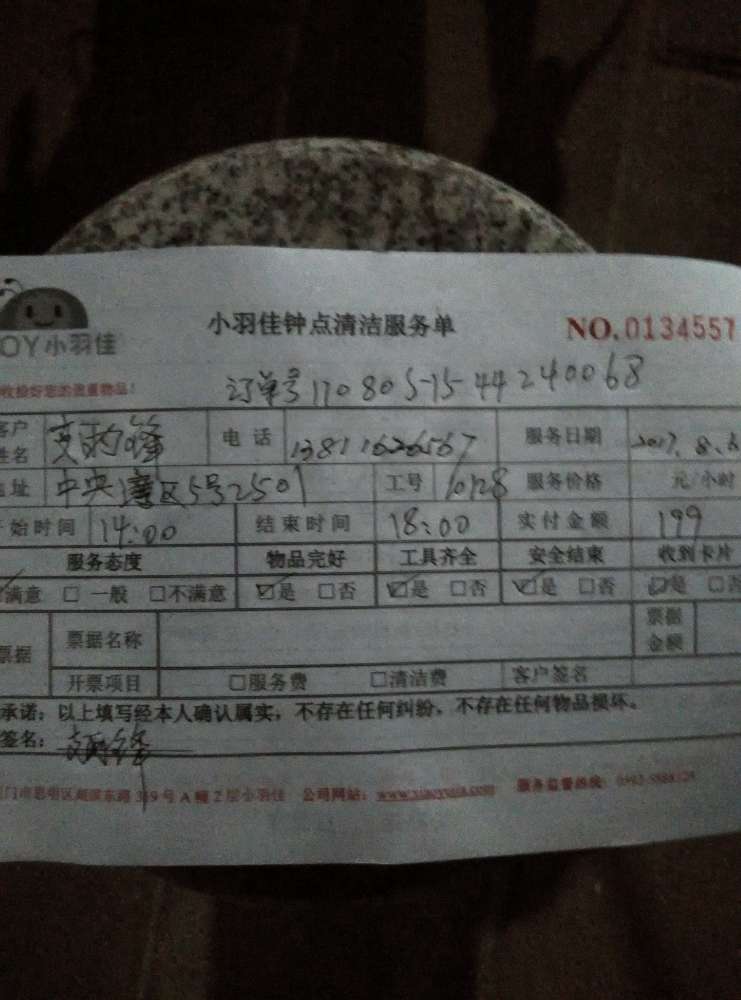 小羽佳钟点清洁服务单 NO.0134557
OY小羽佳
收捡好您的贵重物品!
订单号170805-15-44240068
客户姓名 电话 13811626567 服务日期 2017.8.
地址 中央 区5号2501 工号 10128 服务价格 元/小时
开始时间 14:00 结束时间 18:00 实付金额 199
服务态度 物品完好 工具齐全 安全结束 收到卡片
满意 □ 一般 □不满意 ☑是 □否 ☑是 □否 ☑是 □否 ☑是 □否
票据 票据名称 票据金额
开票项目 □服务费 □清洁费 客户签名
承诺:以上填写经本人确认属实,不存在任何纠纷,不存在任何物品损坏。
签名:
门市思明区湖滨东路319号A幢2层小羽佳 公司网站: 服务监督热线: